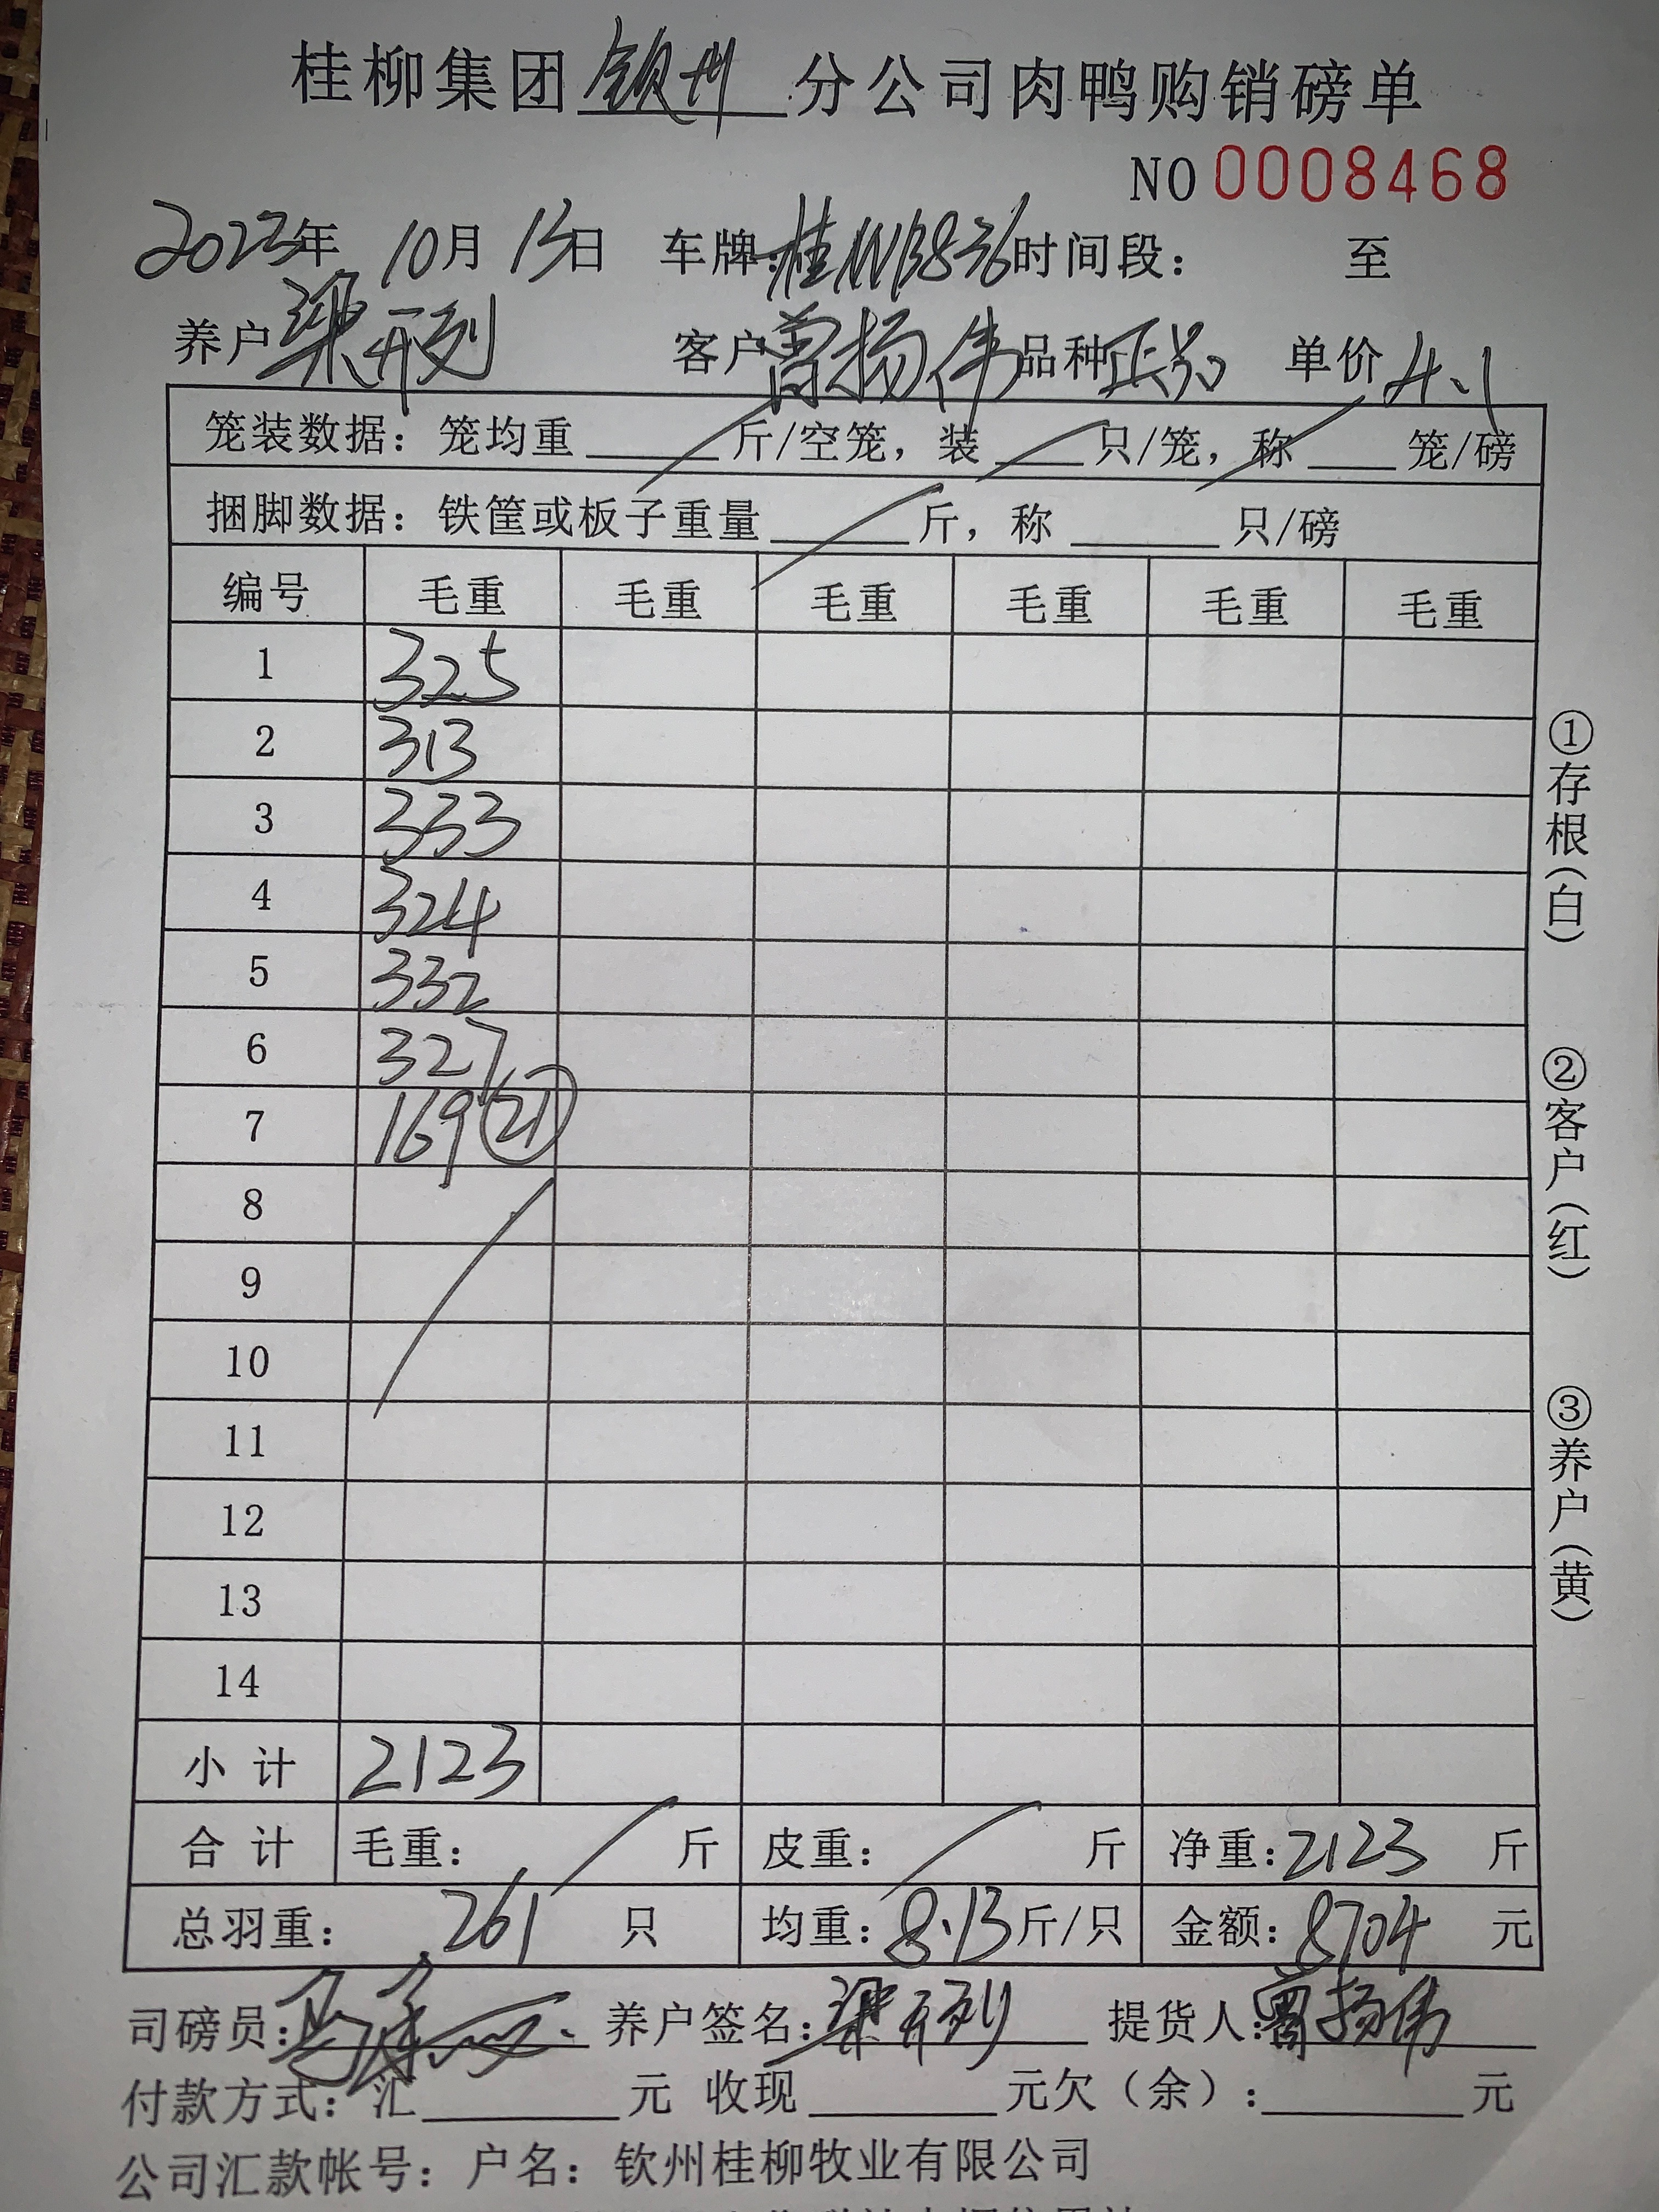 桂柳集团钦州分公司肉鸭购销磅单
NO 0008468
2023年 10月 13日 车牌:桂NB836 时间段: 至
养户 梁开列 客户 曾扬伟 品种 正番 单价 4.1
笼装数据:笼均重 斤/空笼,装 只/笼,称 笼/磅
捆脚数据:铁筐或板子重量 斤,称 只/磅
编号 毛重 毛重 毛重 毛重 毛重 毛重
1 325
2 313
3 333
4 324
5 332
6 327
7 169 21
8
9
10
11
12
13
14
小计 2123
合计 毛重: 斤 皮重: 斤 净重:2123 斤
总羽重: 261 只 均重:8.13斤/只 金额:8704 元
司磅员: 养户签名:梁开列 提货人:曾扬伟
付款方式:汇 元 收现 元欠(余): 元
公司汇款帐号:户名:钦州桂柳牧业有限公司
①存根(白)
②客户(红)
③养户(黄)